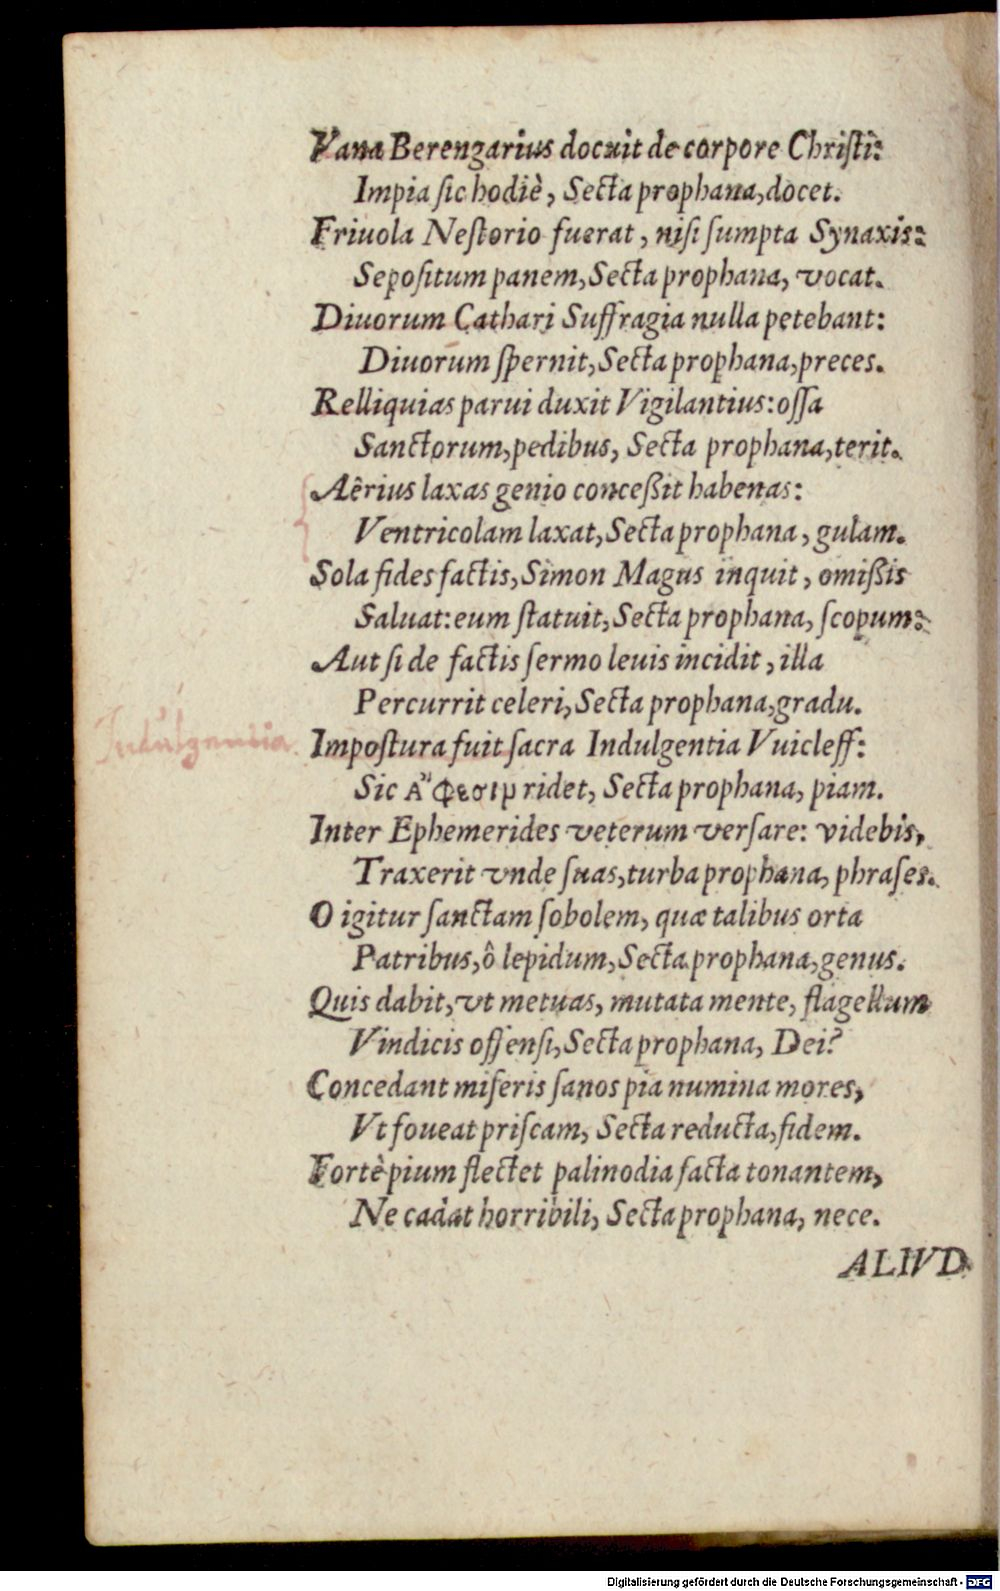 Vana Berengarius docuit de corpore Chriſti:
Impia ſic hodiè, Secta prophana, docet.
Friuola Neſtorio fuerat, niſi ſumpta Synaxis:
Sepoſitum panem, Secta prophana, vocat.
Diuorum Cathari Suffragia nulla petebant:
Diuorum ſpernit, Secta prophana, preces.
Relliquias parui duxit Vigilantius: oſſa
Sanctorum, pedibus, Secta prophana, terit.
Aêrius laxas genio conceßit habenas:
Ventricolam laxat, Secta prophana, gulam.
Sola fides factis, Simon Magus inquit, omißis
Saluat: eum ſtatuit, Secta prophana, ſcopum:
Aut ſi de factis ſermo leuis incidit, illa
Percurrit celeri, Secta prophana, gradu.
Indulgentia. Impoſtura fuit ſacra Indulgentia Vuicleff:
Sic ἄφεσιμ ridet, Secta prophana, piam.
Inter Ephemerides veterum verſare: videbis,
Traxerit vnde ſuas, turba prophana, phraſes.
O igitur ſanctam ſobolem, quæ talibus orta
Patribus, ô lepidum, Secta prophana, genus.
Quis dabit, vt metuas, mutata mente, flagellum
Vindicis offenſi, Secta prophana, Dei?
Concedant miſeris ſanos pia numina mores,
Vt foueat priſcam, Secta reducta, fidem.
Fortè pium flectet palinodia facta tonantem,
Ne cadat horribili, Secta prophana, nece.
ALIVD
Digitalisierung gefördert durch die Deutsche Forschungsgemeinschaft - DFG